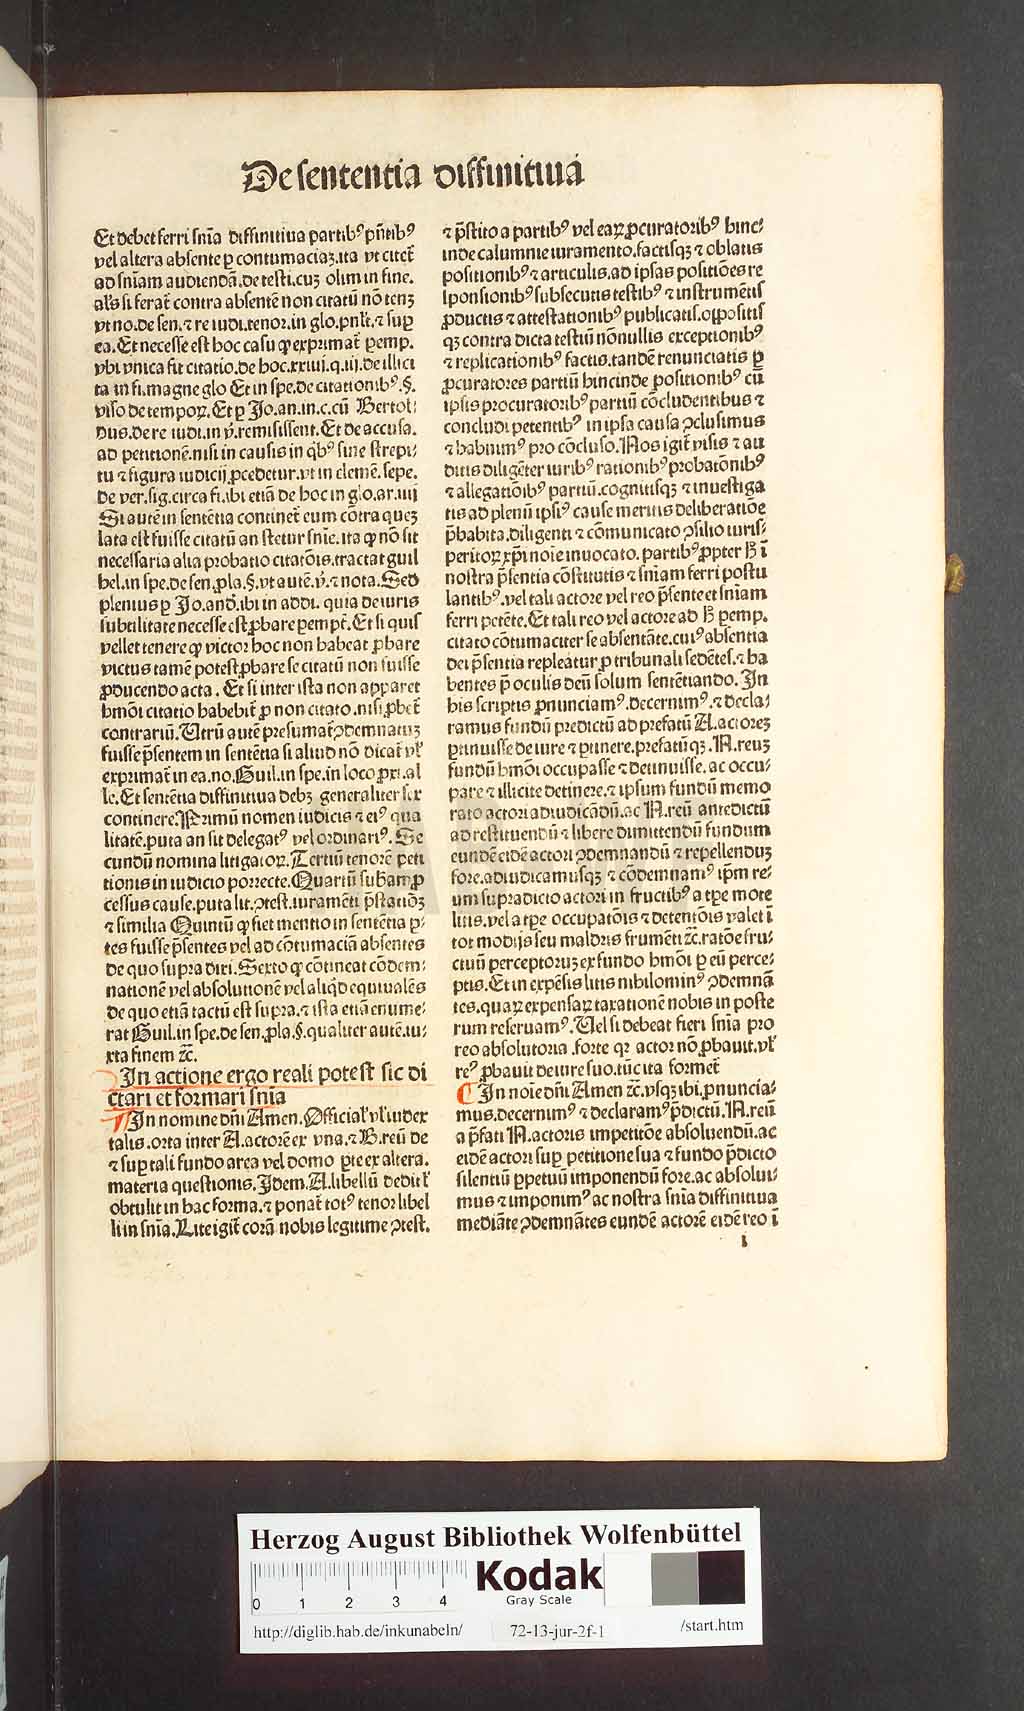 De sententia diffinitiua
Et debet ferri sñia diffinitiua partibꝰ pñtibꝰ
vel altera absente ꝑ contumaciaꝫ.ita vt citet̃
ad sñiam audiendã.de testi.cuꝫ olim in fine.
al̃s si ferat̃ contra absentẽ non citatũ nõ tenꝫ
vt no.de sen.⁊ re iudi.tenor.in glo.pnl̃t.⁊ suꝑ
ea.Et necesse est hoc casu ꝙ exprimat̃ ꝑemp.
vbi vnica fit citatio.de hoc.xxiiij.q.iij.de illici
ta in fi.magne glo Et in spe.de citationibꝰ.§.
viso de tempoꝝ.Et ꝑ Jo.an.in.c.cũ Bertol⸗
dus.de re iudi.in ꝟ.remisissent.Et de accusa.
ad petitionẽ.nisi in causis in q̃bꝰ sine strepi⸗
tu ⁊ figura iudicij ꝓcedetur.vt in clemẽ.sepe.
de ver.sig.circa fi.ibi etiã de hoc in glo.ar.iiij
Si autẽ in sentẽtia continet̃ eum cõtra queꝫ
lata est fuisse citatũ an stetur sñie.ita ꝙ nõ sit
necessaria alia probatio citatõis.tractat guil
hel.in spe.de sen.ꝓla.§.vt autẽ.ꝟ.⁊ nota.Sed
plenius ꝑ Jo.and̃.ibi in addi. quia de iuris
subtilitate necesse est ꝓbare ꝑempt̃.Et si quis
vellet tenere ꝙ victor hoc non habeat ꝓbare
victus tamẽ potest ꝓbare se citatũ non fuisse
ꝓducendo acta. Et si inter ista non apparet
hmõi citatio habebit̃ ꝓ non citato.nisi ꝓbet̃
contrariũ.Utrũ autẽ presumat̃ ꝯdemnatuꝫ
fuisse p̃sentem in sentẽtia si aliud nõ dicat̃ vl̃
exprimat̃ in ea.no.Guil.in spe.in loco ꝓxi.al
le.Et sentẽtia diffinitiua debꝫ generaliter sex
continere.Primũ nomen iudicis ⁊ eiꝰ qua
litatẽ.puta an sit delegatꝰ vel ordinariꝰ. Se
cundũ nomina litigatoꝝ.Tertiũ tenorẽ peti
tionis in iudicio porrecte.Quartũ sub̃am ꝓ
cessus cause.puta lit.ꝯtest.iuramẽti p̃statiõꝫ
⁊ similia Quintũ ꝙ fiet mentio in sentẽtia ꝑ⸗
tes fuisse p̃sentes vel ad cõtumaciã absentes
de quo supra dixi.Sexto ꝙ cõtineat cõdem⸗
nationẽ vel absolutionẽ vel aliq̃d equiualẽs
de quo etiã tactũ est supra.⁊ ista etiã enume⸗
rat Guil.in spe.de sen.ꝓla.§.qualiter autẽ.iu⸗
xta finem ⁊c̃.
In actione ergo reali potest sic di
ctari et formari sñia
In nomine dñi Amen.Official̃ vl̃ iudex
talis.orta inter A.actorẽ ex vna.⁊ B.reũ de
⁊ suꝑ tali fundo area vel domo ꝑte ex altera.
materia questionis.Idem.A.libellũ dedit vl̃
obtulit in hac forma.⁊ ponat̃ totꝰ tenor libel
li in sñia.Lite igit̃ corã nobis legitime ꝯtest.
⁊ p̃stito a partibꝰ vel eaꝝ ꝓcuratoribꝰ hinc⸗
inde calumnie iuramento.factisqꝫ ⁊ oblatis
positionibꝰ ⁊ articulis.ad ipsas positiões re
sponsionibꝰ subsecutis testibꝰ ⁊ instrumẽtis
ꝓductis ⁊ attestationibꝰ publicatis.oppositis
qꝫ contra dicta testiũ nõnullis exceptionibꝰ
⁊ replicationibꝰ factis.tandẽ renunciatis ꝑ
ꝓcuratores partiũ hincinde ꝓ positionibꝰ cũ
ipsis procuratoribꝰ partiũ cõcludentibus ⁊
concludi petentibꝰ in ipsa causa ꝯclusimus
⁊ habuimꝰ pro cõcluso.Nos igit̃ visis ⁊ au
ditis diligẽter iuribꝰ rationibꝰ probatõnibꝰ
⁊ allegatiõibꝰ partiũ.cognitisqꝫ ⁊ inuestiga
tis ad plenũ ipsiꝰ cause meritis deliberatiõe
p̃habita.diligenti ⁊ cõmunicato ꝯsilio iuris⸗
peritoꝝ xp̃i noĩe inuocato.partibꝰ ꝓpter h̃ ĩ
nostra p̃sentia cõstitutis ⁊ sñiam ferri postu
lantibꝰ.vel tali actore vel reo p̃sente et sñiam
ferri petẽte.Et tali reo vel actore ad h̃ ꝑemp.
citato cõtumaciter se absentãte.cuiꝰ absentia
dei p̃sentia repleatur ꝓ tribunali sedẽtes.⁊ ha
bentes p̃ oculis deũ solum sentẽtiando. In
his scriptis ꝓnunciamꝰ.decernimꝰ.⁊ decla⸗
ramus fundũ predictũ ad prefatũ A.actoreꝫ
ꝑtinuisse de iure ⁊ ꝑtinere.prefatũqꝫ.N.reuꝫ
fundũ hmõi occupasse ⁊ detinuisse.ac occu⸗
pare ⁊ illicite detinere.⁊ ipsum fundũ memo
rato actori adiudicãdũ.ac N.reũ antedictũ
ad restituendũ ⁊ libere dimittendũ fundum
eundẽ eidẽ actori ꝯdemnandũ ⁊ repellenduꝫ
fore.adiudicamusqꝫ ⁊ cõdemnamꝰ ip̃m re⸗
um supradicto actori in fructibꝰ a tp̃e mote
litis.vel a tp̃e occupatõis ⁊ detentõis valet ĩ
tot modijs seu maldris frumẽti ⁊c̃.ratõe fru⸗
ctuũ perceptoruꝫ ex fundo hmõi ꝑ eũ perce⸗
ptis.Et in expẽsis litis nihilominꝰ ꝯdemnã
tes.quaꝝ expensaꝝ taxationẽ nobis in poste
rum reseruamꝰ.Uel si debeat fieri sñia pro
reo absolutoria.forte qꝛ actor nõ ꝓbauit.vl̃
reꝰ ꝓbauit de iure suo.tũc ita formet̃
In noĩe dñi Amen ⁊c̃.vsqꝫ ibi.ꝓnuncia⸗
mus.decernimꝰ ⁊ declaramꝰ p̃dictũ.N.reũ
a p̃fati N.actoris impetitõe absoluendũ.ac
eidẽ actori suꝑ petitione sua ⁊ fundo p̃dicto
silentiũ ꝑpetuũ imponendũ fore.ac absolui⸗
mus ⁊ imponimꝰ ac nostra sñia diffinitiua
mediãte ꝯdemnãtes eundẽ actorẽ eidẽ reo ĩ
i
Herzog August Bibliothek Wolfenbüttel
0 1 2 3 4
Kodak
Gray Scale
http://diglib.hab.de/inkunabeln/ 72-13-jur-2f-1 /start.htm